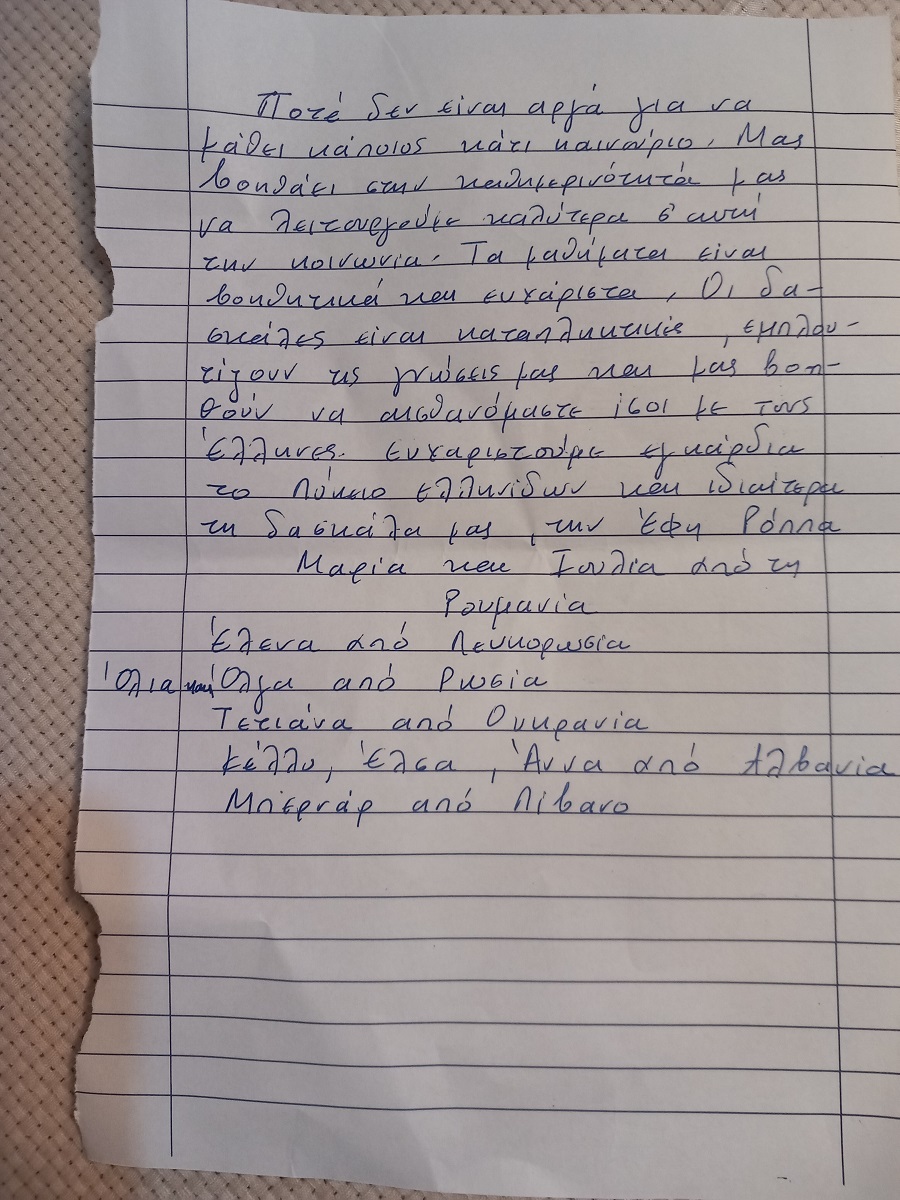 Ποτέ δεν είναι αργά για να
μάθει κάποιος κάτι καινούριο. Μας
βοηθάει στην καθημερινότητά μας
να λειτουργούμε καλύτερα σ' αυτή
την κοινωνία. Τα μαθήματα είναι
βοηθητικά και ευχάριστα, Οι δα-
σκάλες είναι καταπληκτικές, εμπλου-
τίζουν τις γνώσεις μας και μας βοη-
θούν να αισθανόμαστε ίσοι με τους
Έλληνες. Ευχαριστούμε εγκάρδια
το Λύκειο Ελληνίδων και ιδιαίτερα
τη δασκάλα μας, την Έφη Ρόππα
Μαρία και Ιουλία από τη
Ρουμανία
Έλενα από Λευκορωσία
Όλια και Όλγα από Ρωσία
Τετιάνα από Ουκρανία
Κέλλυ, Έλσα, Άννα από Αλβανία
Μπερνάρ από Λίβανο